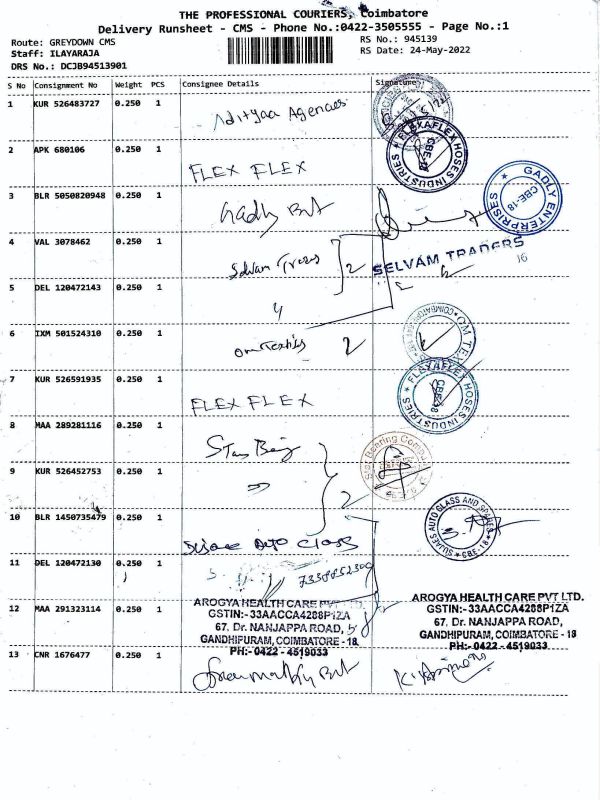 THE PROFESSIONAL COURIERS, Coimbatore
Delivery Runsheet - CMS - Phone No.:0422-3505555 - Page No.:1
Route: GREYDOWN CMS
Staff: ILAYARAJA
DRS No.: DCJB94513901
RS No.: 945139
RS Date: 24-May-2022
S No Consignment No Weight PCS Consignee Details Signature
1 KUR 526483727 0.250 1 Adityaa Agencies
2 APK 680106 0.250 1 FLEX FLEX
FLEXAFLEX HOSES INDUSTRIES CBE-18
3 BLR 5050820948 0.250 1 Gadly
GADLY ENTERPRISES CBE-18
4 VAL 3078462 0.250 1 Selvam 2
SELVAM TRADERS
16
5 DEL 120472143 0.250 1 4
6 IXM 501524310 0.250 1 Om Textiles 2
OM TEX COIMBATORE
7 KUR 526591935 0.250 1 FLEX FLEX
FLEXAFLEX HOSES INDUSTRIES CBE-18
8 MAA 289281116 0.250 1 Star
Star Bearing
9 KUR 526452753 0.250 1 2
10 BLR 1450735479 0.250 1 Auto Glass
AUTO GLASS AND SPARES CBE-18
11 DEL 120472130 0.250 1
12 MAA 291323114 0.250 1
AROGYA HEALTH CARE PVT LTD.
GSTIN:-33AACCA4288P1ZA
67, Dr. NANJAPPA ROAD,
GANDHIPURAM, COIMBATORE - 18
PH:- 0422 - 4519033
AROGYA HEALTH CARE PVT LTD.
GSTIN:-33AACCA4288P1ZA
67, Dr. NANJAPPA ROAD,
GANDHIPURAM, COIMBATORE - 18
PH:- 0422 - 4519033
13 CNR 1676477 0.250 1